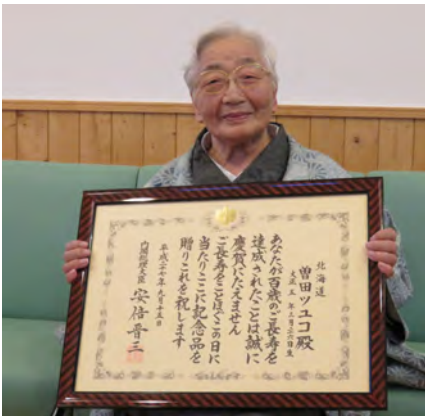 北海道
曽田ツユコ殿
大正五年三月二六日生
あなたが百歳のご長寿を
達成されたことは誠に
慶賀にたえません
ご長寿をことほぐこの日に
当たりここに記念品を
贈りこれを祝します
平成二十七年九月十五日
内閣総理大臣 安倍晋三